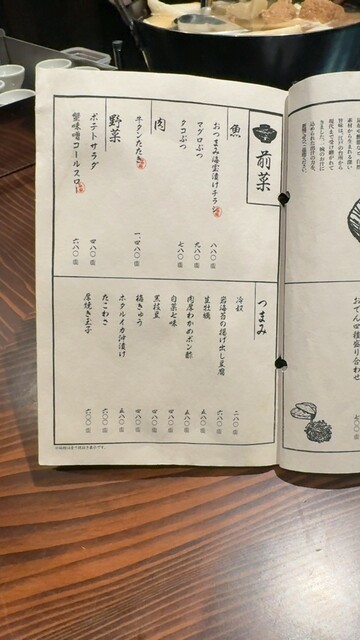 前菜
魚
おつまみ海宝漬けチラシ 八八〇
マグロぶつ 九八〇
タコぶつ 七八〇
肉
牛タンたたき 一、四八〇
野菜
ポテトサラダ 四八〇
蟹味噌コールスロー 六八〇
つまみ
冷奴 二八〇
岩海苔の揚げ出し豆腐 六八〇
生牡蠣 五八〇
肉厚わかめポン酢 五八〇
白菜七味 四八〇
黒枝豆 四八〇
梅きゅう 四八〇
ホタルイカ沖漬け 五八〇
たこわさ 五八〇
厚焼き玉子 六〇〇
おでん四種盛り合わせ